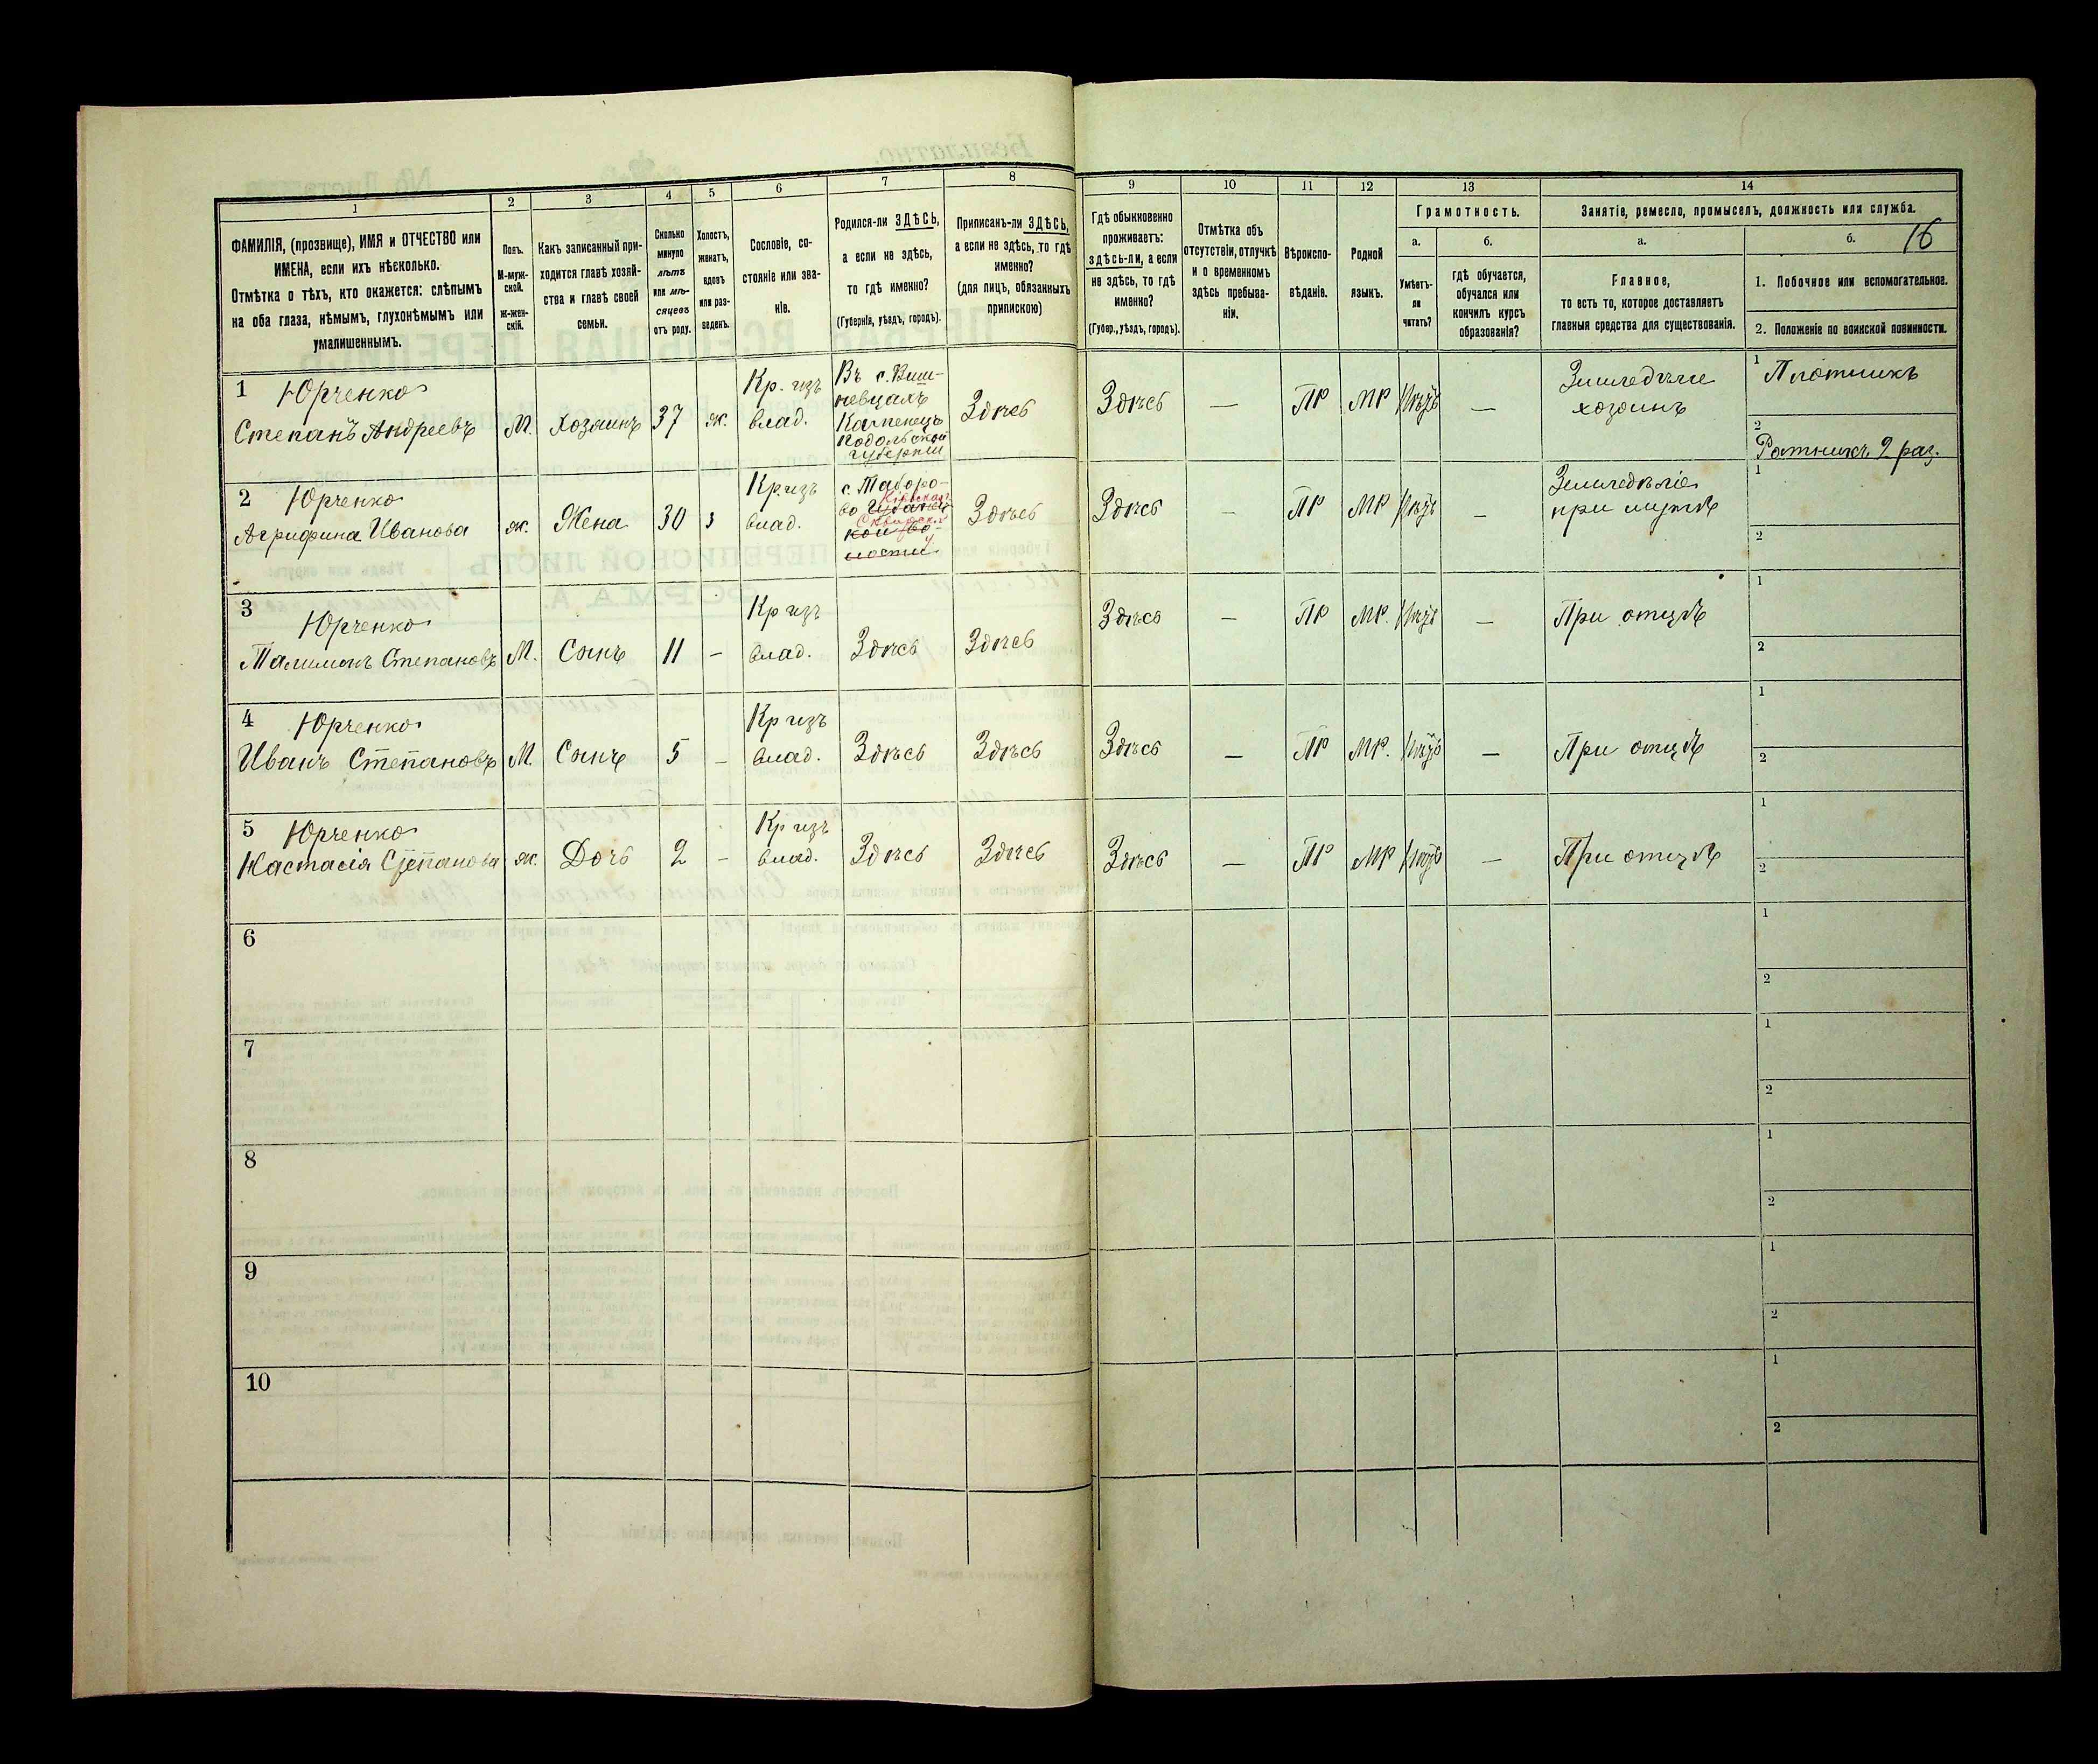 1 2 3 4 5 6 7 8 9 10 11 12 13 14
ФАМИЛІЯ, (прозвище), ИМЯ и ОТЧЕСТВО или
ИМЕНА, если ихъ нѣсколько.
Отмѣтка о тѣхъ, кто окажется: слѣпымъ
на оба глаза, нѣмымъ, глухонѣмымъ или
умалишеннымъ.
Полъ.
М-муж-
ской.
ж-жен-
скій.
Какъ записанный при-
ходится главѣ хозяй-
ства и главѣ своей
семьи.
Сколько
минуло
лѣтъ
или мѣ-
сяцевъ
отъ роду.
Холостъ,
женатъ,
вдовъ
или раз-
веденъ.
Сословіе, со-
стояніе или зва-
ніе.
Родился-ли ЗДѢСЬ,
а если не здѣсь,
то гдѣ именно?
(Губернія, уѣздъ, городъ).
Приписанъ-ли ЗДѢСЬ,
а если не здѣсь, то гдѣ
именно?
(для лицъ, обязанныхъ
припискою)
Гдѣ обыкновенно
проживаетъ:
здѣсь-ли, а если
не здѣсь, то гдѣ
именно?
(Губер., уѣздъ, городъ).
Отмѣтка объ
отсутствіи, отлучкѣ
и о временномъ
здѣсь пребыва-
ніи.
Вѣроиспо-
вѣданіе.
Родной
языкъ.
Грамотность.
а.
Умѣетъ-
ли
читать?
б.
гдѣ обучается,
обучался или
кончилъ курсъ
образованія?
Занятіе, ремесло, промыселъ, должность или служба.
а.
Главное,
то есть то, которое доставляетъ
главныя средства для существованія.
б. 16
1. Побочное или вспомогательное.
2. Положеніе по воинской повинности.
1 Юрченко
Степанъ Андреевъ
М.
Хозяинъ
37
ж.
Кр. изъ
влад.
Въ с. Виш-
невцахъ
Каменецъ
Подольской
губерніи
Здѣсь
Здѣсь
—
ПР
МР
Нѣтъ
—
Земледѣліе
хозяинъ
1 Плотникъ
2
Ратникъ 2 раз.
2 Юрченко
Агрифина Иванова
ж.
Жена
30
з
Кр. изъ
влад.
Здѣсь
Здѣсь
—
ПР
МР
Нѣтъ
—
Земледѣліе
при мужѣ
1
2
3 Юрченко
Талимонъ Степановъ
М.
Сынъ
11
—
Кр изъ
влад.
Здѣсь
Здѣсь
Здѣсь
—
ПР
МР.
Нѣтъ
—
При отцѣ
1
2
4 Юрченко
Иванъ Степановъ
М.
Сынъ
5
—
Кр изъ
влад.
Здѣсь
Здѣсь
Здѣсь
—
ПР
МР.
Нѣтъ
—
При отцѣ
1
2
5 Юрченко
Настасія Степанова
ж.
Дочь
2
—
Кр изъ
влад.
Здѣсь
Здѣсь
Здѣсь
—
ПР
МР
Нѣтъ
—
При отцѣ
1
2
6
1
2
7
1
2
8
1
2
9
1
2
10
1
2